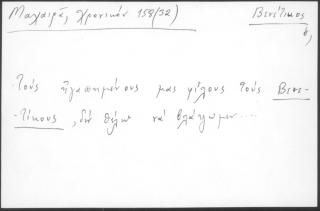 Μαχαιρᾶ, Χρονικόν 158(32)
Βενέτικος
ὁ,
τοὺς ἠγαπημένους μας φίλους τοὺς Βενε-
-τίκους, δὲν θέλω νὰ βλάψωμεν....